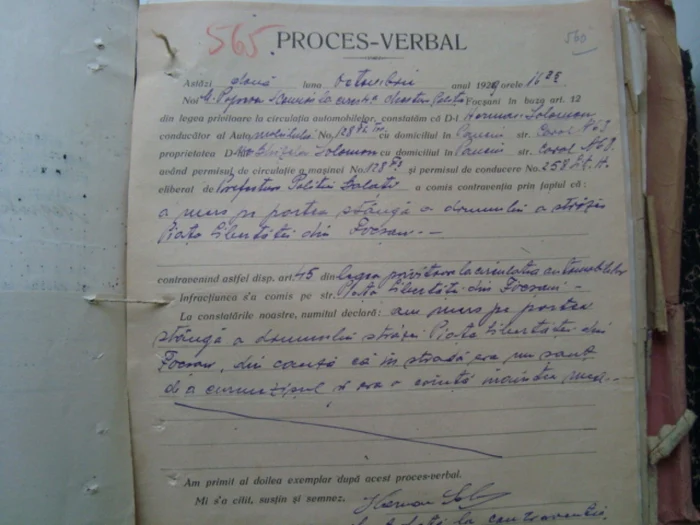 565.
560
PROCES-VERBAL
Astăzi două luna Octombrie anul 1929 orele 16 25
Noi M. Popovici Comisar la circ. Chestura Poliției Focșani în baza art. 12
din legea privitoare la circulația automobilelor, constatăm că D-l Herman Solomon
conducător al Automobilului No. 128 cu domiciliul în Panciu str. Carol No 63
proprietatea D- Solomon cu domiciliul în Panciu str. Carol No 68,
având permisul de circulație a mașinei No. 128 și permisul de conducere No. 258
eliberat de Prefectura Poliției Galați a comis contravenția prin faptul că:
a mers pe partea stângă a drumului a străzii
Piața Libertăței din Focșani —
contravenind astfel disp. art. 45 din legea privitoare la circulația automobilelor
Infracțiunea s'a comis pe str. Piața Libertăței din Focșani —
La constatările noastre, numitul declară: am mers pe partea
stângă a drumului străzei Piața Libertăței din
Focșani, din cauză că în stradă era un șanț
de a curmezișul și era o căruță înaintea mea. —
Am primit al doilea exemplar după acest proces-verbal.
Mi s'a citit, susțin și semnez,
Herman Sol
la contravenții